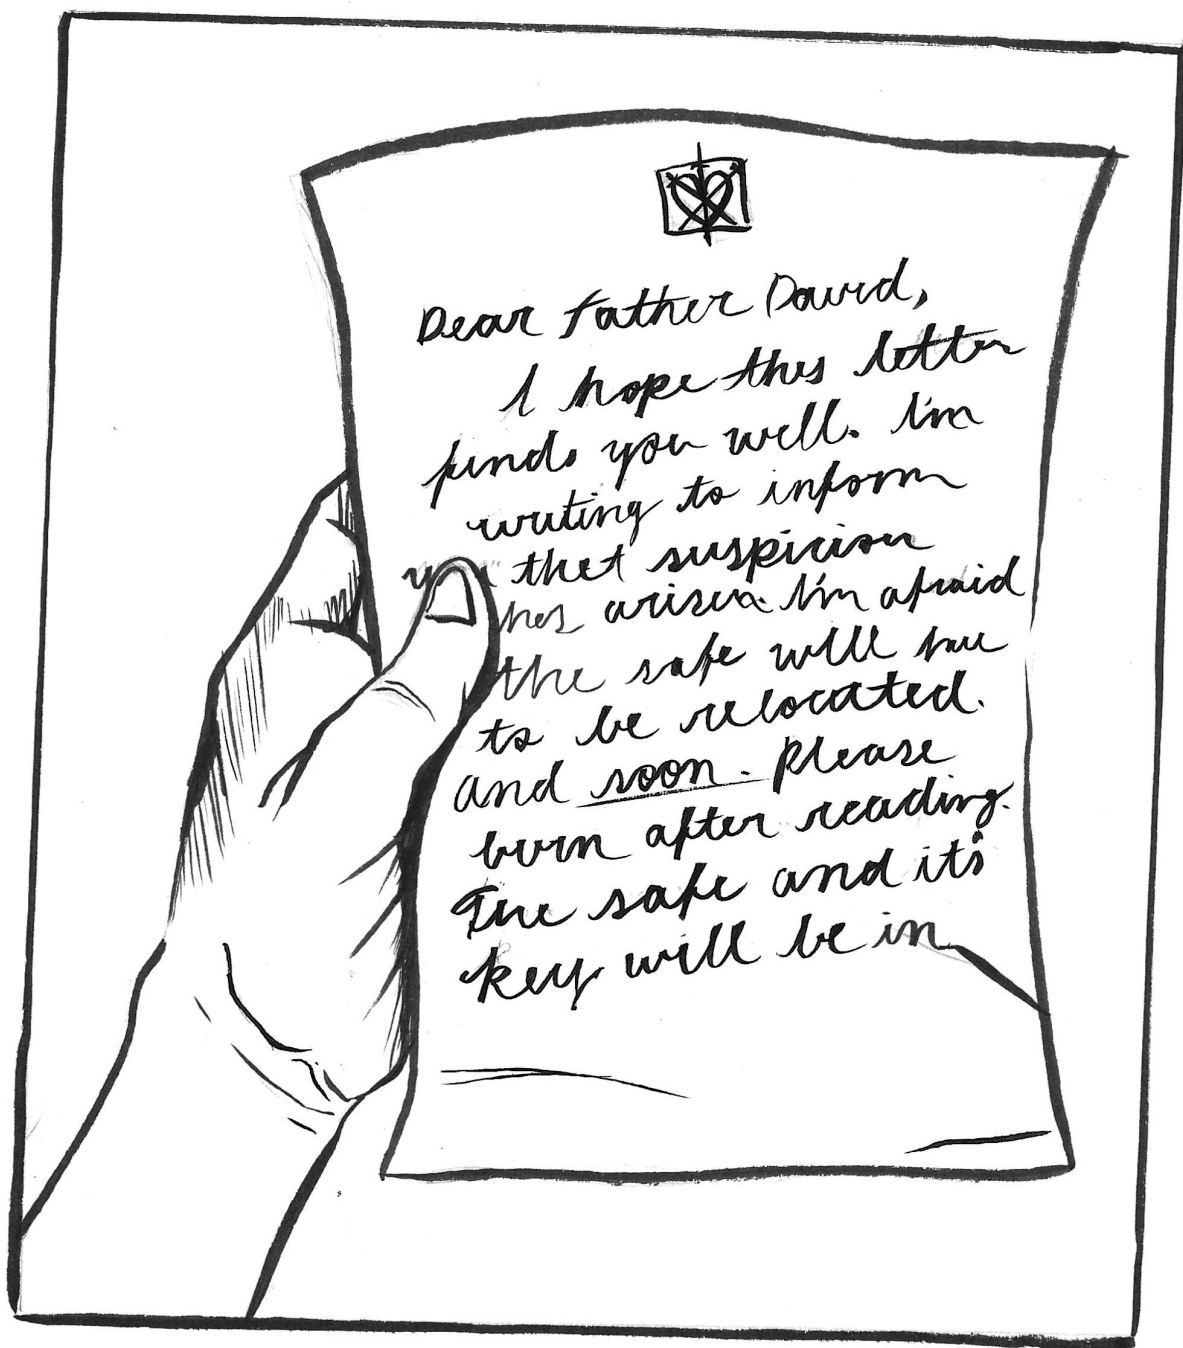 Dear Father David,
I hope this letter
finds you well. I'm
writing to inform
you that suspicion
has arisen. I'm afraid
the safe will have
to be relocated.
and soon. Please
burn after reading.
The safe and its
key will be in